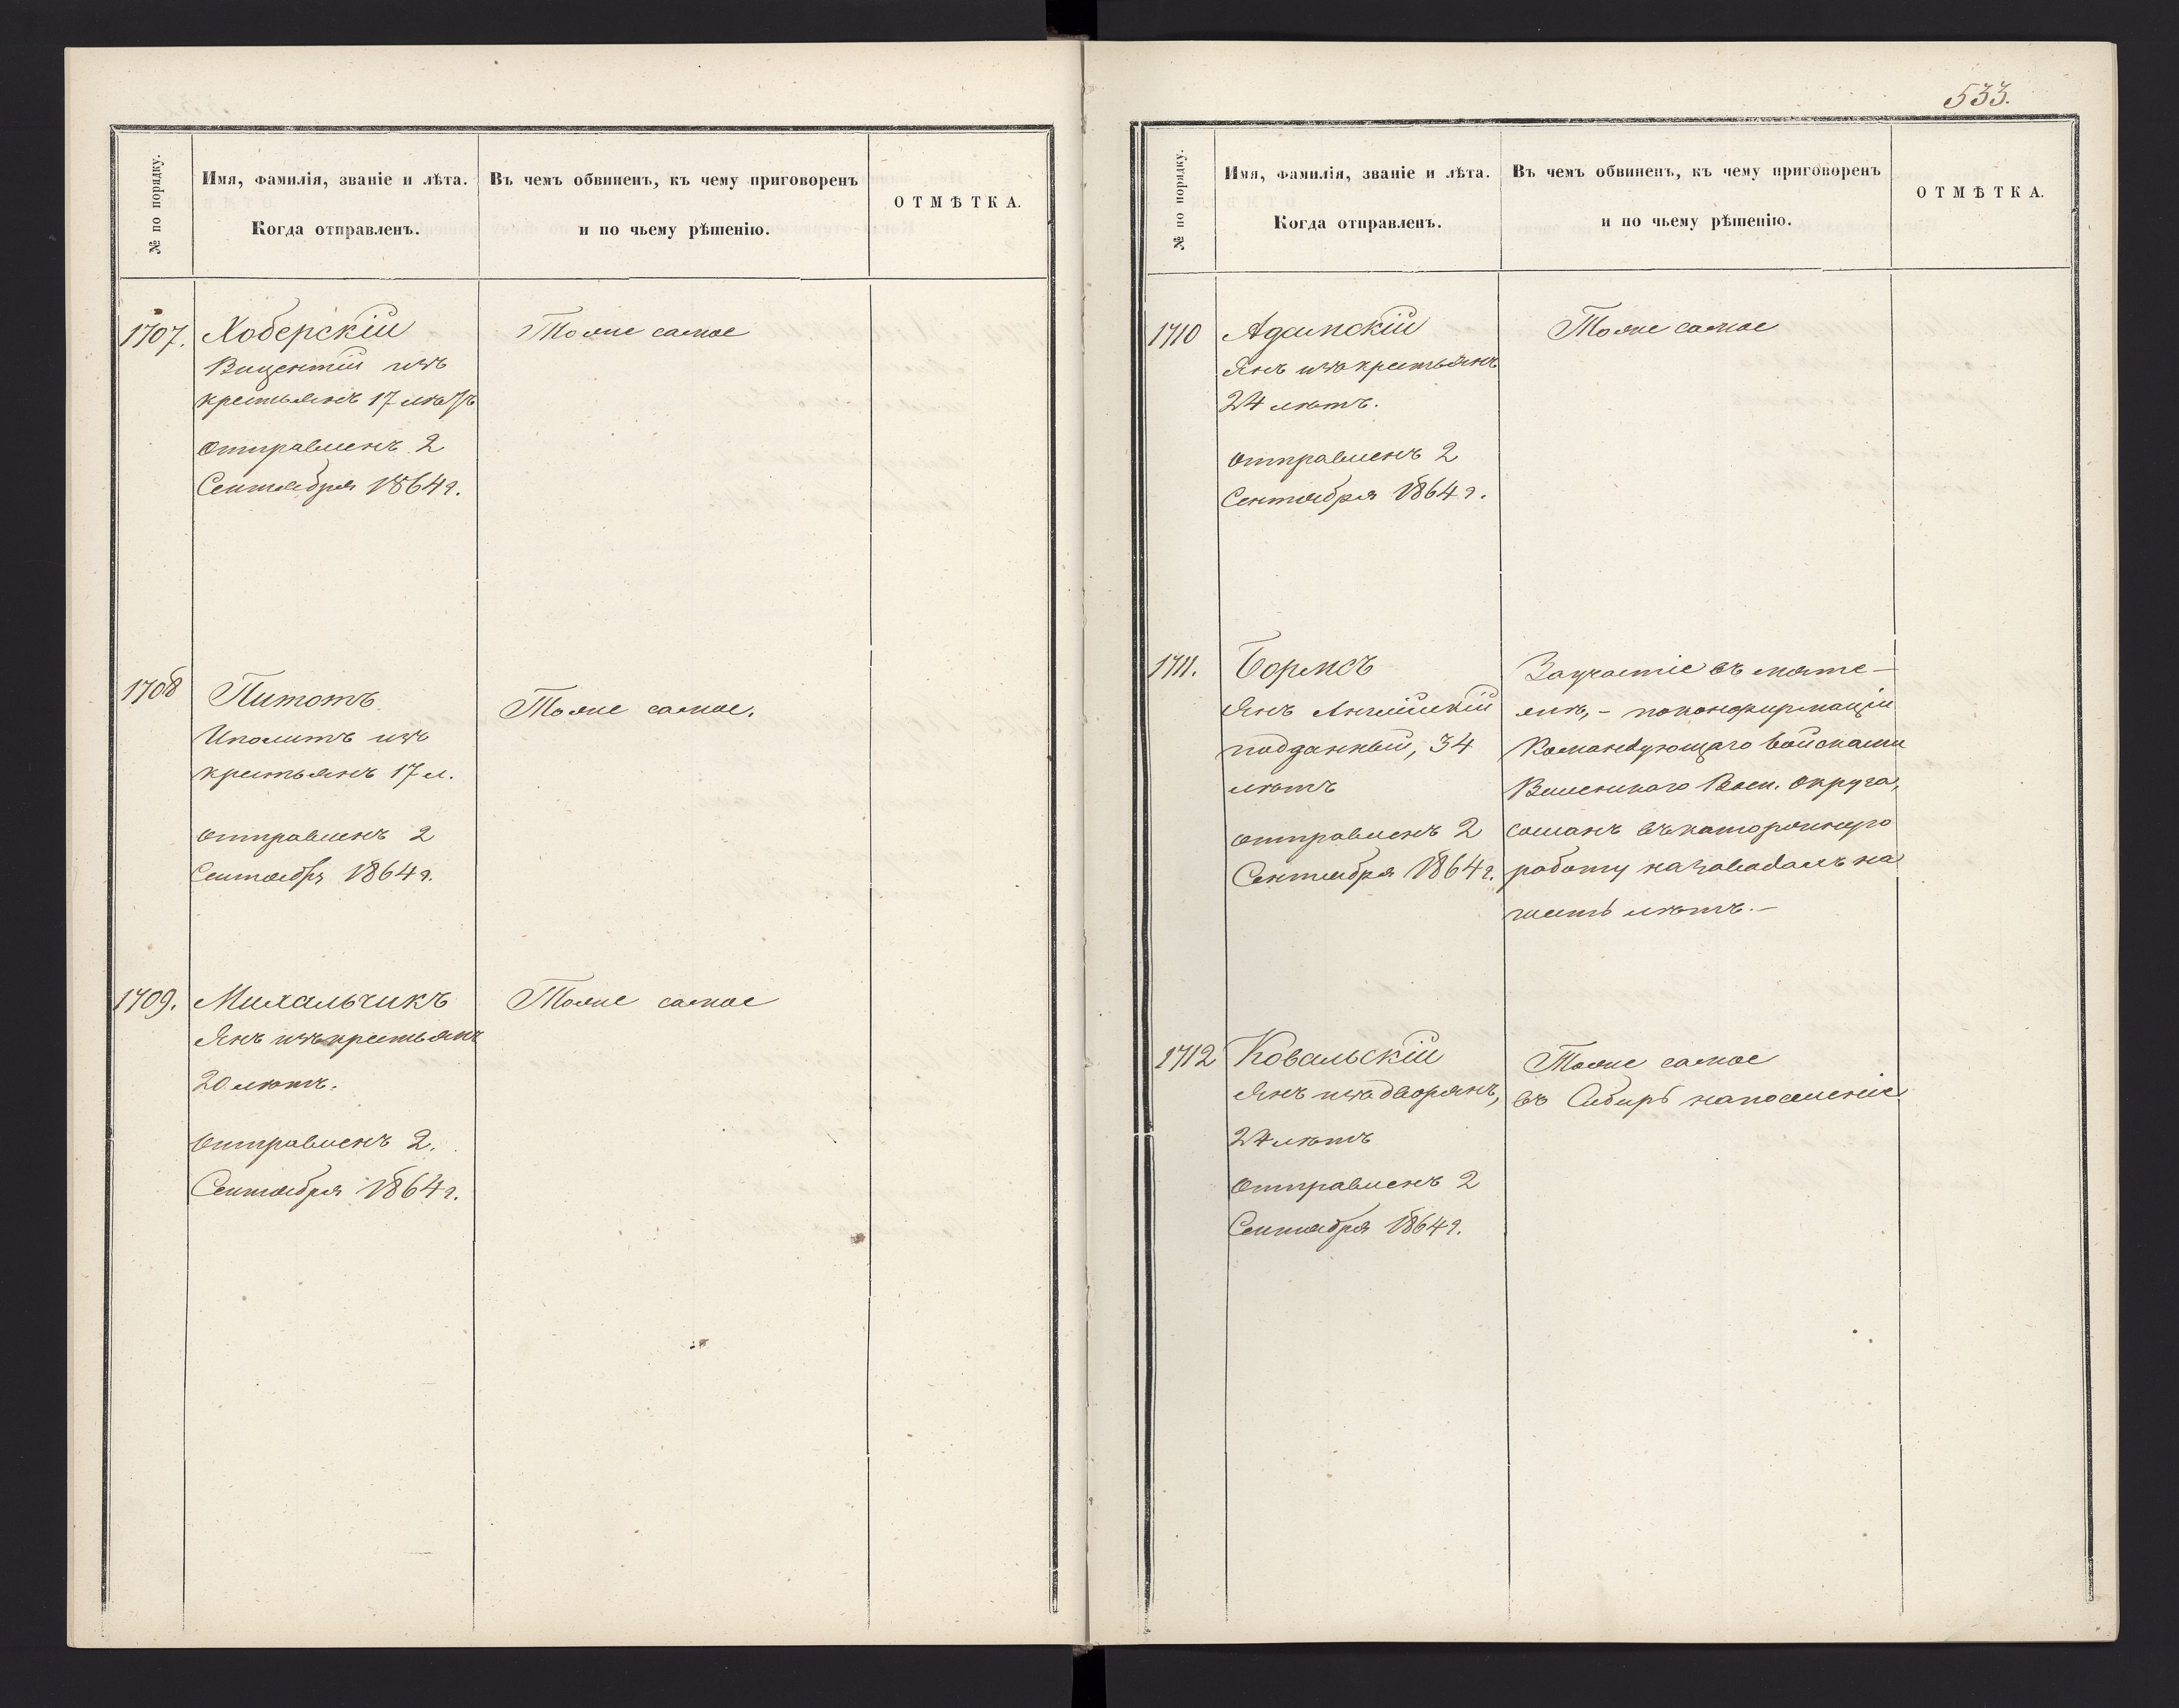 № по порядку.
Имя, Фамилія, званіе и лѣта.
Когда отправленъ.
Въ чемъ обвиненъ, къ чему приговоренъ
и по чьему рѣшенію.
ОТМѢТКА.
1707. Хоберскій Тоже самое
Викентій изъ
крестьянъ 17 лѣтъ
Отправленъ 2
Сентября 1864 г.
1708 Питотъ Тоже самое.
Иполитъ изъ
крестьянъ 17 л.
Отправленъ 2
Сентября 1864 г.
1709. Михальчикъ Тоже самое
Янъ изъ крестьянъ
20 лѣтъ.
Отправленъ 2.
Сентября 1864 г.
533.
№ по порядку.
Имя, Фамилія, званіе и лѣта.
Когда отправленъ.
Въ чемъ обвиненъ, къ чему приговоренъ
и по чьему рѣшенію.
ОТМѢТКА.
1710 Адамскій Тоже самое
Янъ изъ крестьянъ
24 лѣтъ.
Отправленъ 2
Сентября 1864 г.
1711. Бормсъ
Янъ Англійскій
подданный, 34
лѣтъ
Отправленъ 2
Сентября 1864 г.
За участіе въ мяте-
жѣ, - по конфирмаціи
Командующаго войсками
Виленскаго Воен. Округа,
сосланъ въ каторжную
работу на заводахъ на
шесть лѣтъ. -
1712 Ковальскій
Янъ изъ дворянъ,
24 лѣтъ
Отправленъ 2
Сентября 1864 г.
Тоже самое
въ Сибирь на поселеніе